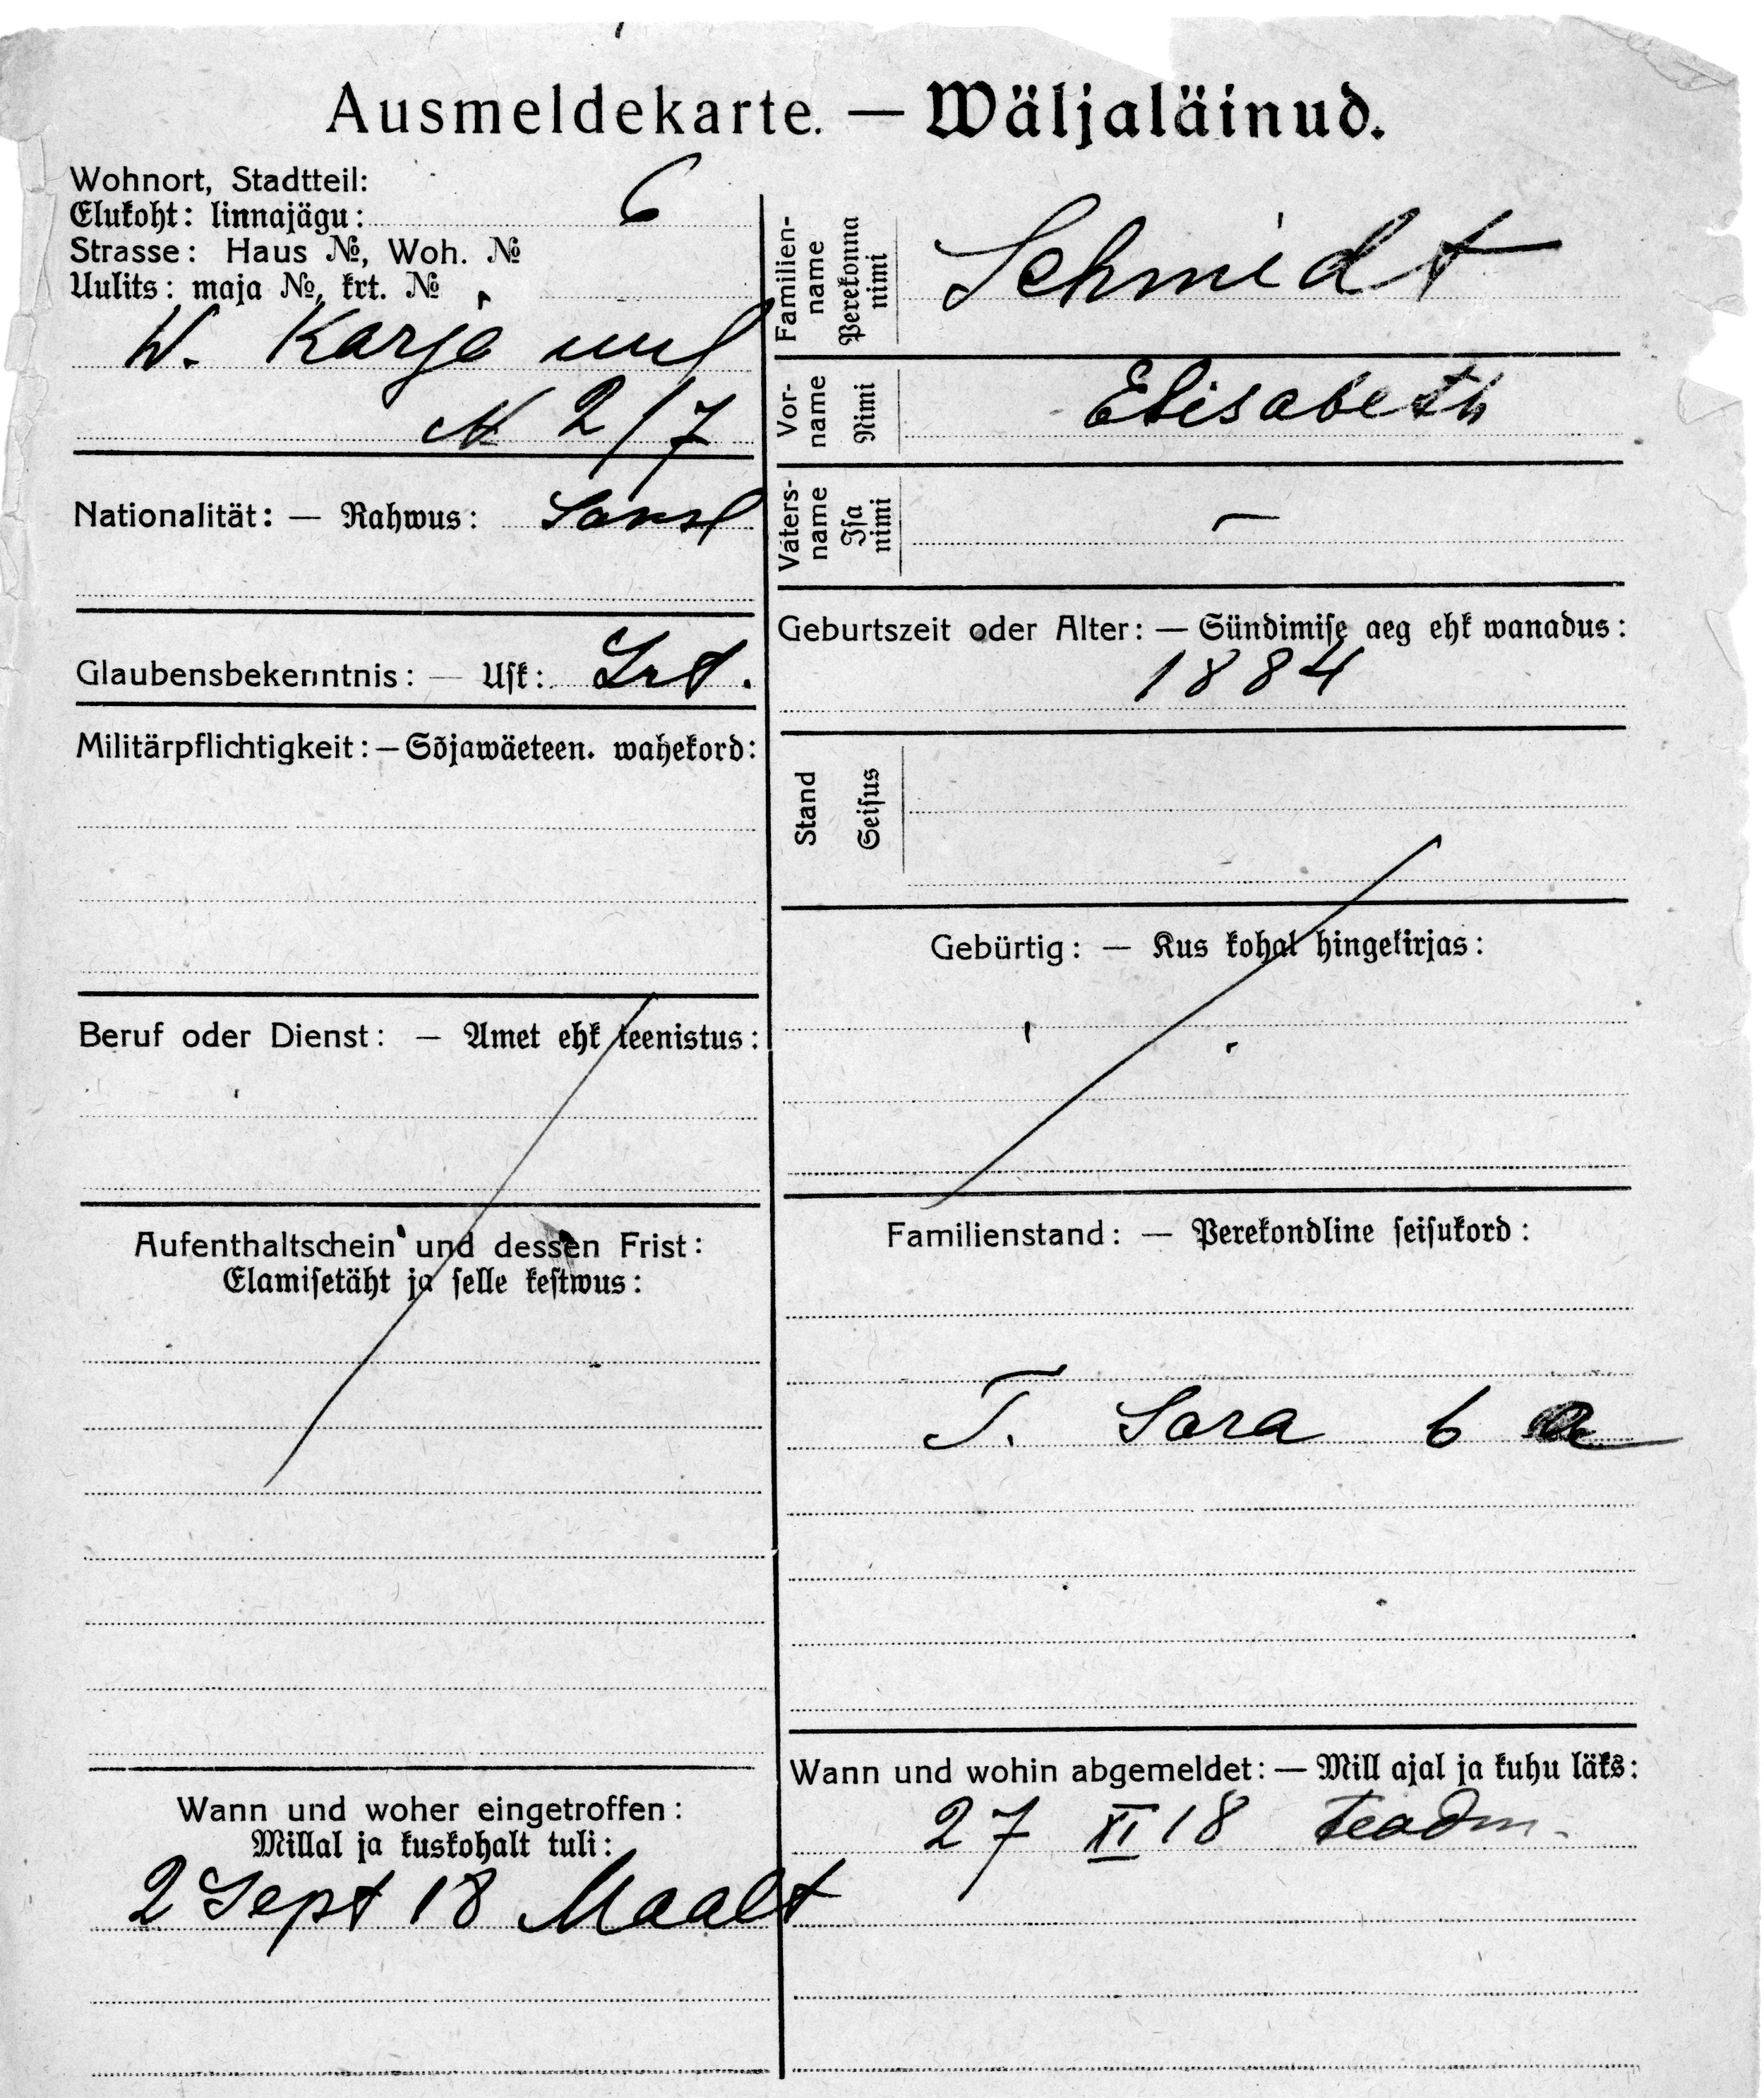 Ausmeldekarte. — Wäljaläinud.
Wohnort, Stadtteil:
Elukoht: linnajägu: 6
Strasse: Haus №, Woh. №
Uulits: maja №, krt. №
W. Karja uul
N 2/7
Nationalität: — Rahwus:
Glaubensbekenntnis: — Usk:
Militärpflichtigkeit: — Sõjawäeteen. wahekord:
Beruf oder Dienst: — Amet ehk teenistus:
Aufenthaltschein und dessen Frist:
Elamisetäht ja selle kestwus:
Wann und woher eingetroffen:
Millal ja kuskohalt tuli:
2 Sept 18 Maalt
Familien-
name
Perekonna
nimi
Schmidt
Vor-
name
Nimi
Elisabeth
Vaters-
name
Isa
nimi
—
Geburtszeit oder Alter: — Sündimise aeg ehk wanadus:
1884
Stand
Seisus
Gebürtig: — Kus kohal hingekirjas:
Familienstand: — Perekondline seisukord:
T. Sara 6 a
Wann und wohin abgemeldet: — Mill ajal ja kuhu läks:
27 XI 18 teadm.